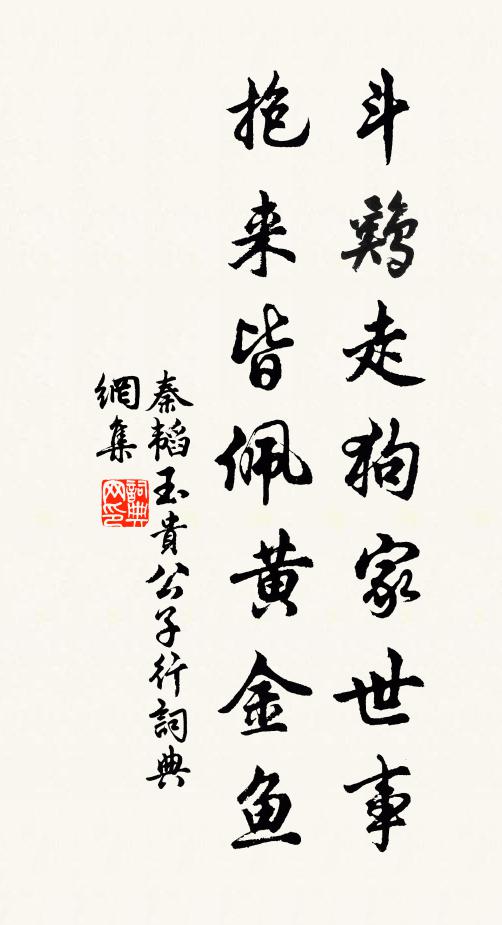 斗鷄走狗家世事
抱来皆佩黄金鱼
秦韬玉貴公子行詞典
網集
詞典网印